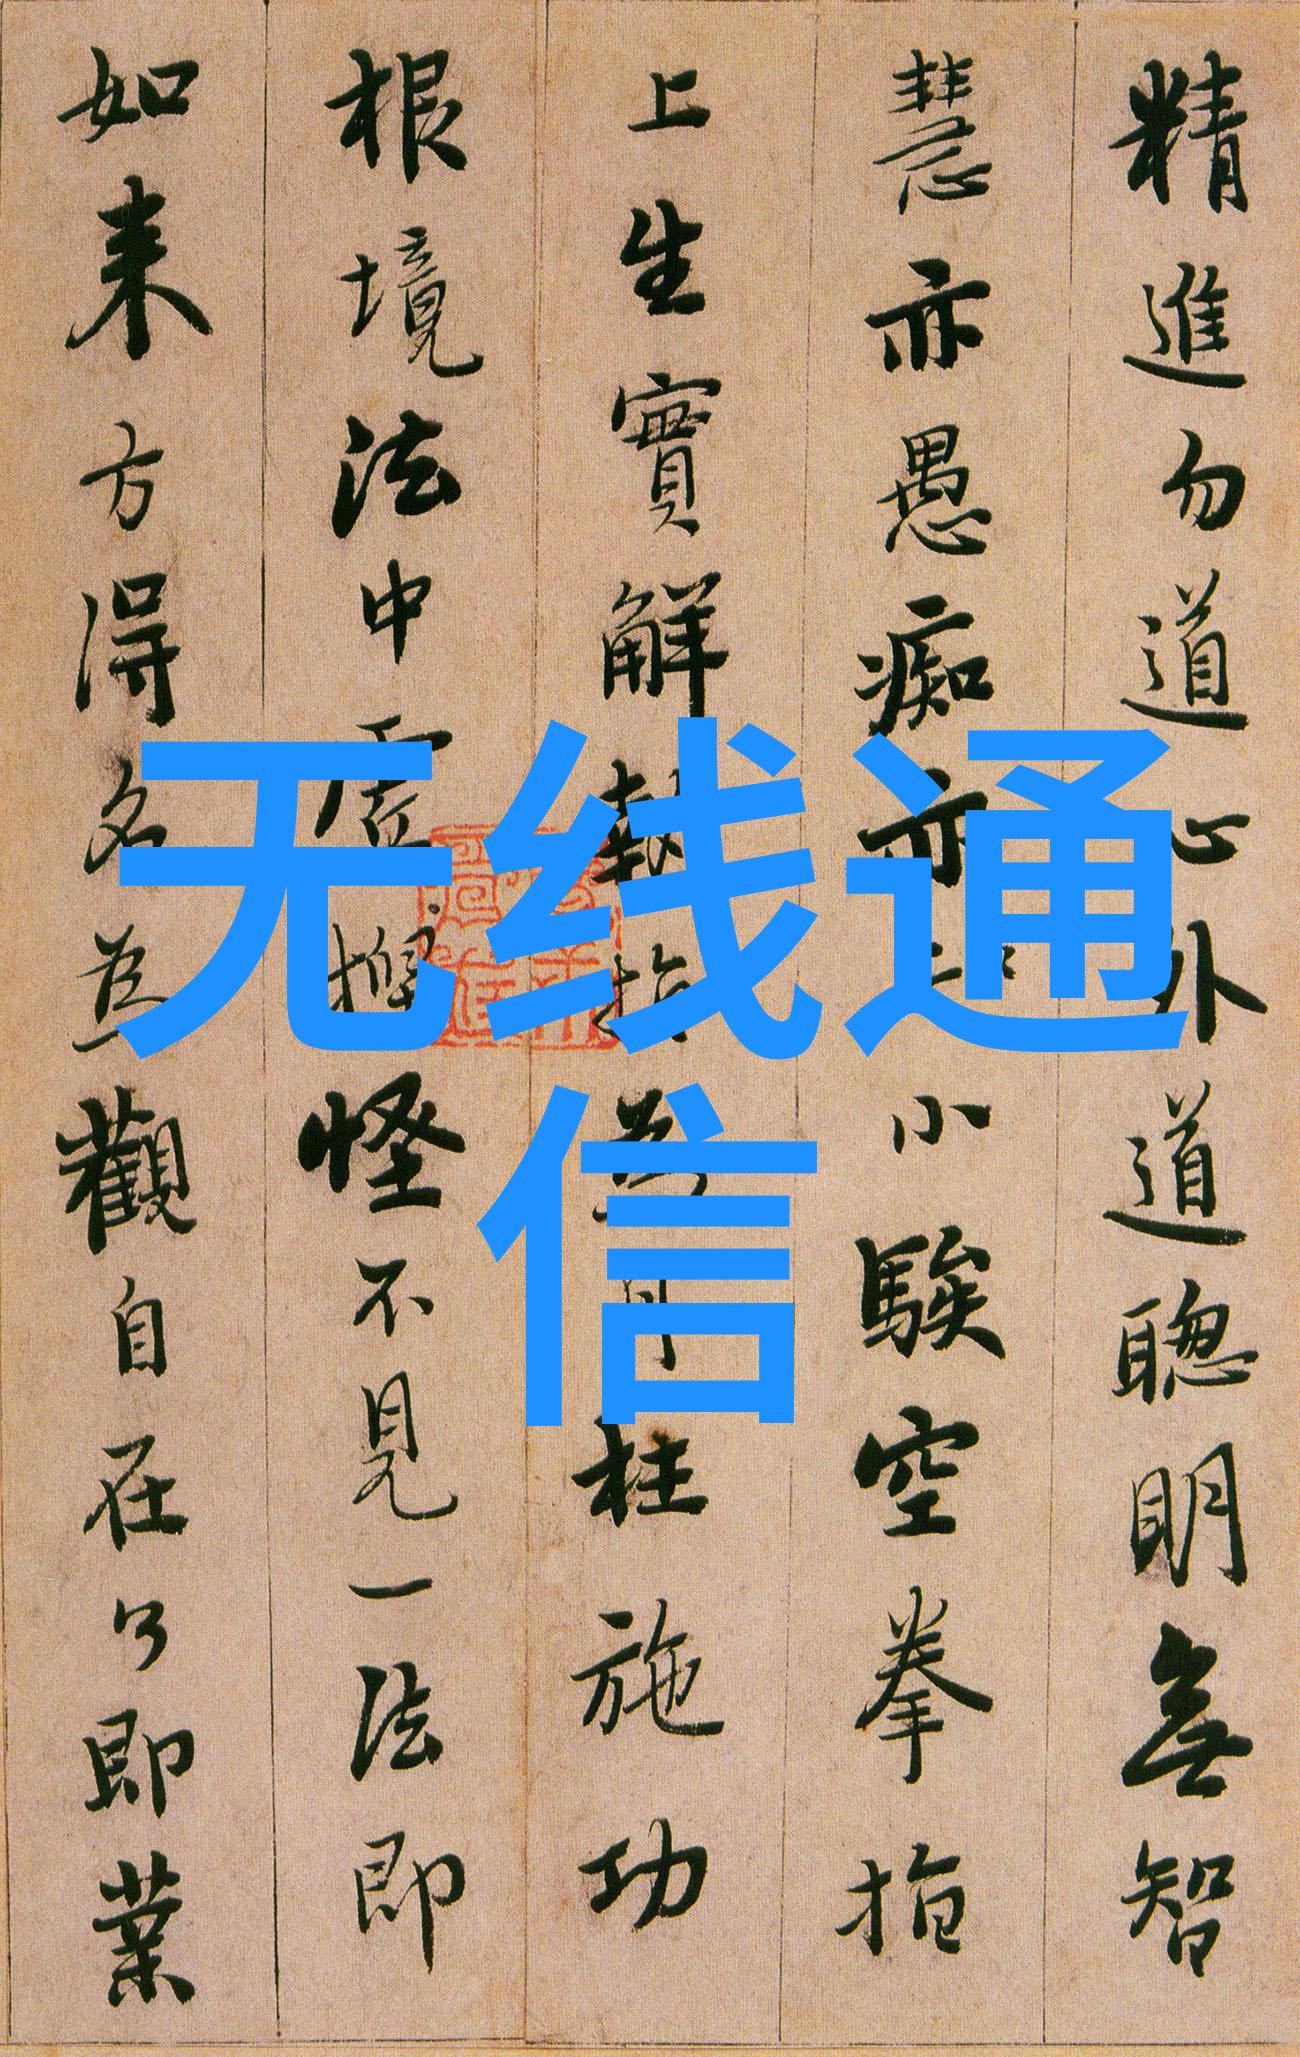 精進勿道心外道聰明無智
慧亦愚癡亦小騃空拳指
上生實解執指為月枉施功
根境法中虛捏怪不見一法即
如来方得名為觀自在了即業
无线通
信